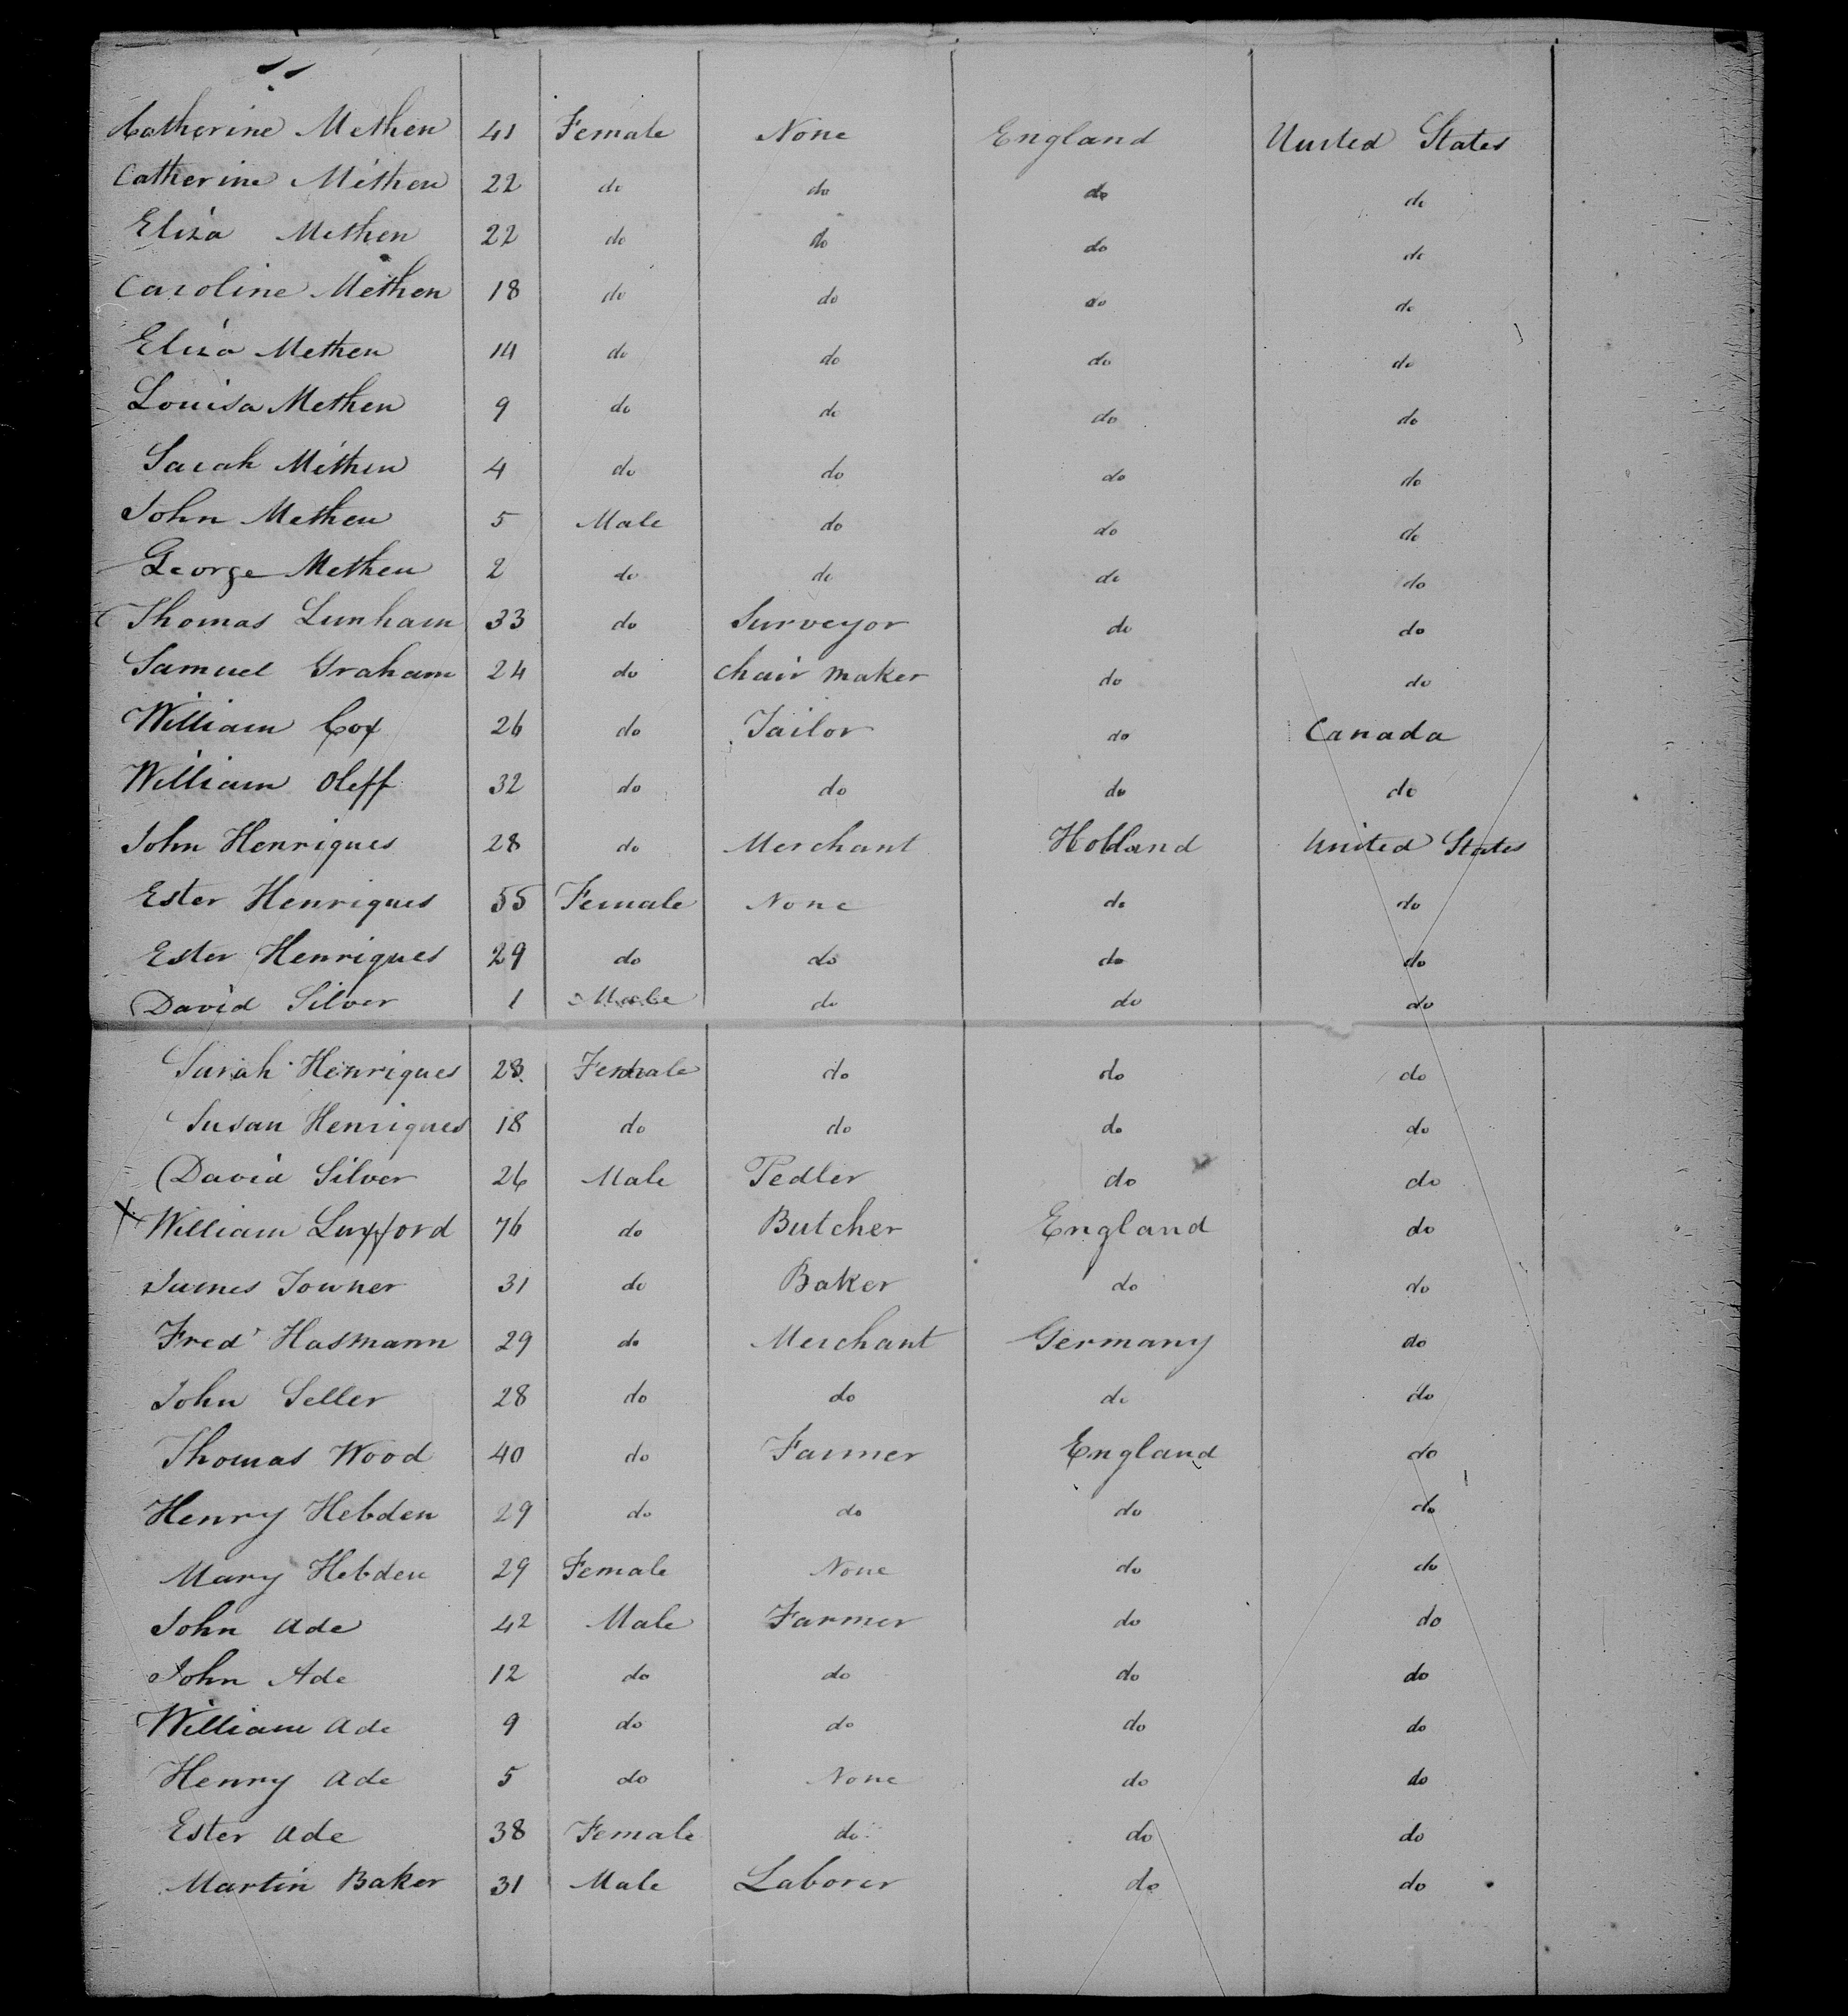 Catherine Methen 41 Female None England United States
Catherine Methen 22 do do do do
Eliza Methen 22 do do do do
Caroline Methen 18 do do do do
Eliza Methen 14 do do do do
Louisa Methen 9 do do do do
Sarah Methen 4 do do do do
John Methen 5 Male do do do
George Methen 2 do do do do
Thomas Lunham 33 do Surveyor do do
Samuel Graham 24 do chair maker do do
William Cox 26 do Tailor do Canada
William Oleff 32 do do do do
John Henriques 28 do Merchant Holland United States
Ester Henriques 55 Female None do do
Ester Henriques 29 do do do do
David Silver 1 Male do do do
Sarah Henriques 23 Female do do do
Susan Henriques 18 do do do do
David Silver 26 Male Pedler do do
X William Luxford 76 do Butcher England do
James Towner 31 do Baker do do
Fred Hasmann 29 do Merchant Germany do
John Seller 28 do do do do
Thomas Wood 40 do Farmer England do
Henry Hebden 29 do do do do
Mary Hebden 29 Female None do do
John Ade 42 Male Farmer do do
John Ade 12 do do do do
William Ade 9 do do do do
Henry Ade 5 do None do do
Ester Ade 38 Female do do do
Martin Baker 31 Male Laborer do do